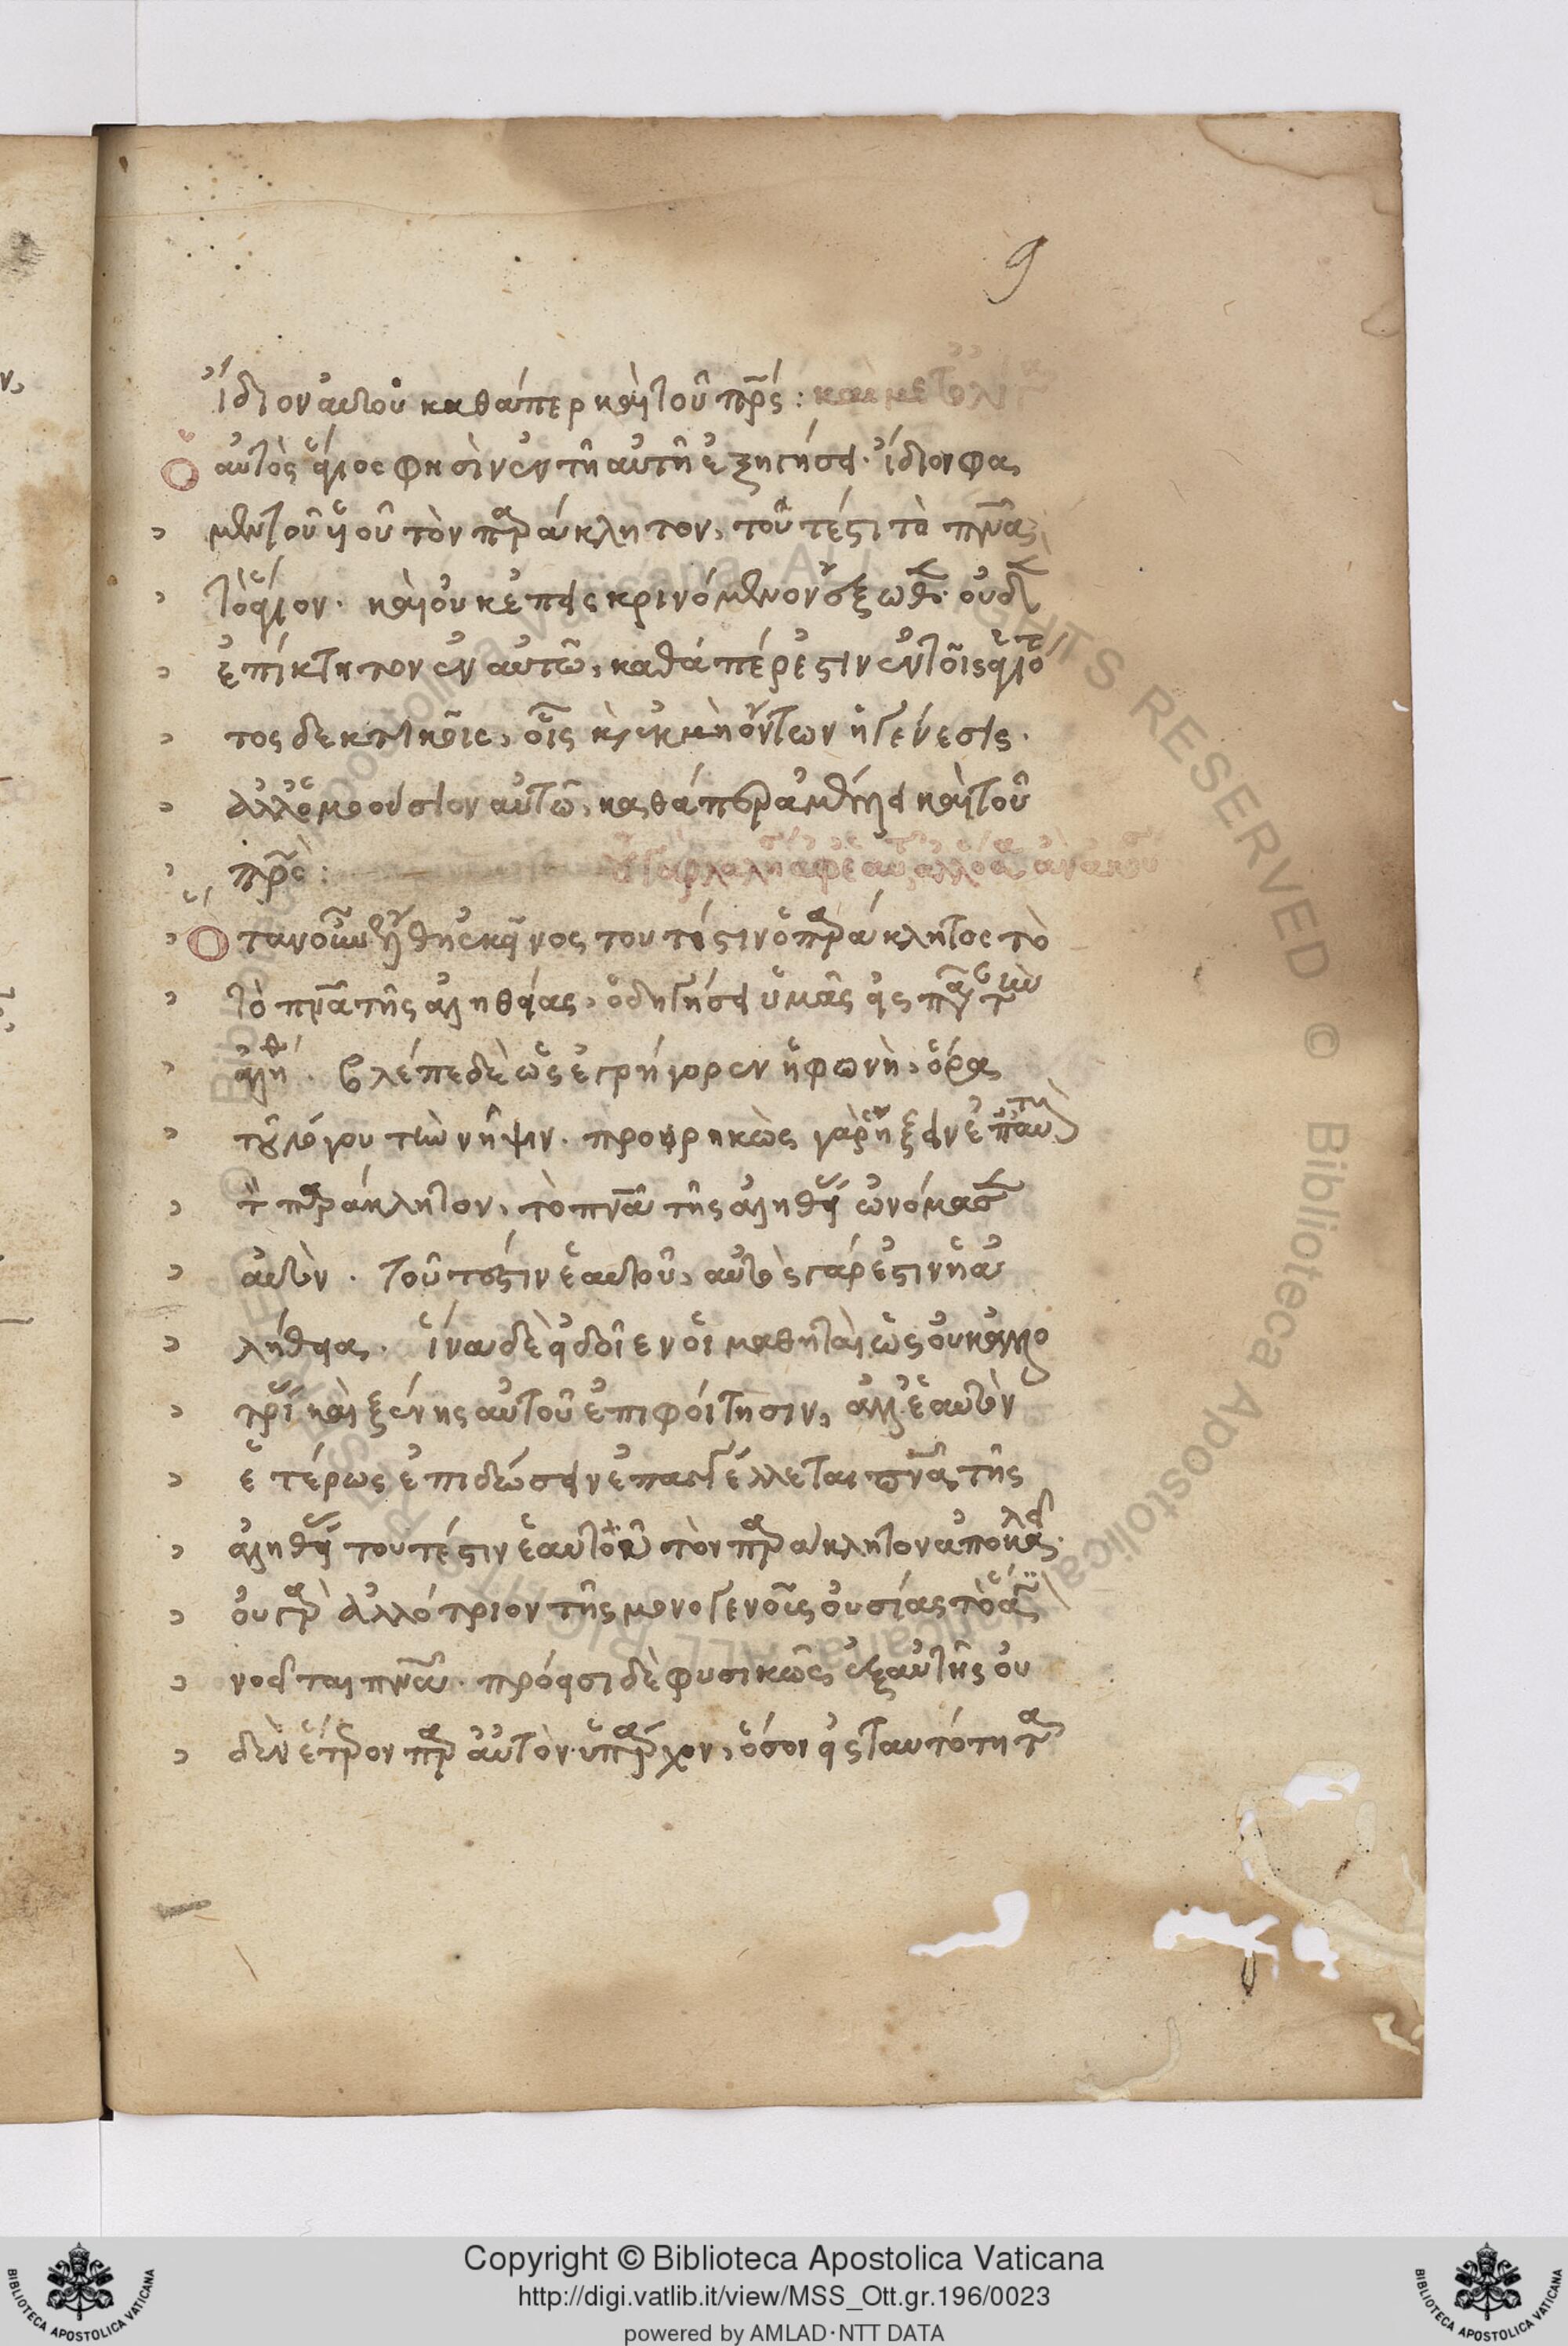 9
ἴδιον αὐτοῦ καθάπερ καὶ τοῦ πρς:
Ὁ αὐτὸς ἅγιος φησὶν ἐν τῇ αὐτῇ ἐξηγήσει. ἴδιον φα
μὲν τοῦ υἱοῦ τὸν παράκλητον, τοῦτέστι τὸ πνᾶ
τὸ ἅγιον. καὶ οὐκ ἐπεισκρινόμενον ἔξωθεν. οὐδὲ
ἐπίκτητον ἐν αὐτῷ, καθάπέρ ἐστιν ἐν τοῖς ἁγιότη
τος δεκτικοῖς, οἷς καὶ ἐκ μὴ ὄντων ἡ γένεσις.
ἀλλ' ὁμοούσιον αὐτῷ, καθάπερ ἀμέλει καὶ τοῦ
πρς:
Ὅταν οὖν ἔλθῃ ἐκεῖνος τουτέστιν ὁ παράκλητος τὸ
τὸ πνᾶ τῆς ἀληθείας, ὁδηγήσει ὑμᾶς εἰς πᾶσαν τὴν
ἀλήθ. βλέπε δὲ ὡς ἐγρήγορεν ἡ φωνὴ, ὅρα
τοῦ λόγου τὴν νῆψιν. προειρηκὼς γὰρ ἥξειν ἐπ' αὐτοὺς
τὸν παράκλητον, τὸ πνᾶ τῆς ἀληθείας ὠνόμασεν
αὐτὸν. τοῦτέστιν ἑαυτοῦ, αὐτὸς γάρ ἐστιν ἡ ἀ
λήθεια. ἵνα δὲ εἰδοῖεν οἱ μαθηταὶ, ὡς οὐκ ἀλλο
τρίας καὶ ξένης αὐτοῦ ἐπιφοίτησιν, ἀλλ' ἑαυτὸν
ἑτέρως ἐπιδώσειν ἐπαγγέλλεται πνᾶ τῆς
ἀληθείας τουτέστιν ἑαυτοῦ τὸν παράκλητον ἀποκαλεῖ.
οὐ γὰρ ἀλλότριον τῆς μονογενοῦς οὐσίας τὸ ἅγιον
νοεῖται πνᾶ. πρόεισι δὲ φυσικῶς ἐξ αὐτῆς οὐ
δὲν ἕτερον παρ' αὐτὸν ὑπάρχον, ὅσον εἰς ταυτότητα
Copyright © Biblioteca Apostolica Vaticana
http://digi.vatlib.it/view/MSS_Ott.gr.196/0023
powered by AMLAD·NTT DATA
BIBLIOTECA APOSTOLICA VATICANA
BIBLIOTECA APOSTOLICA VATICANA